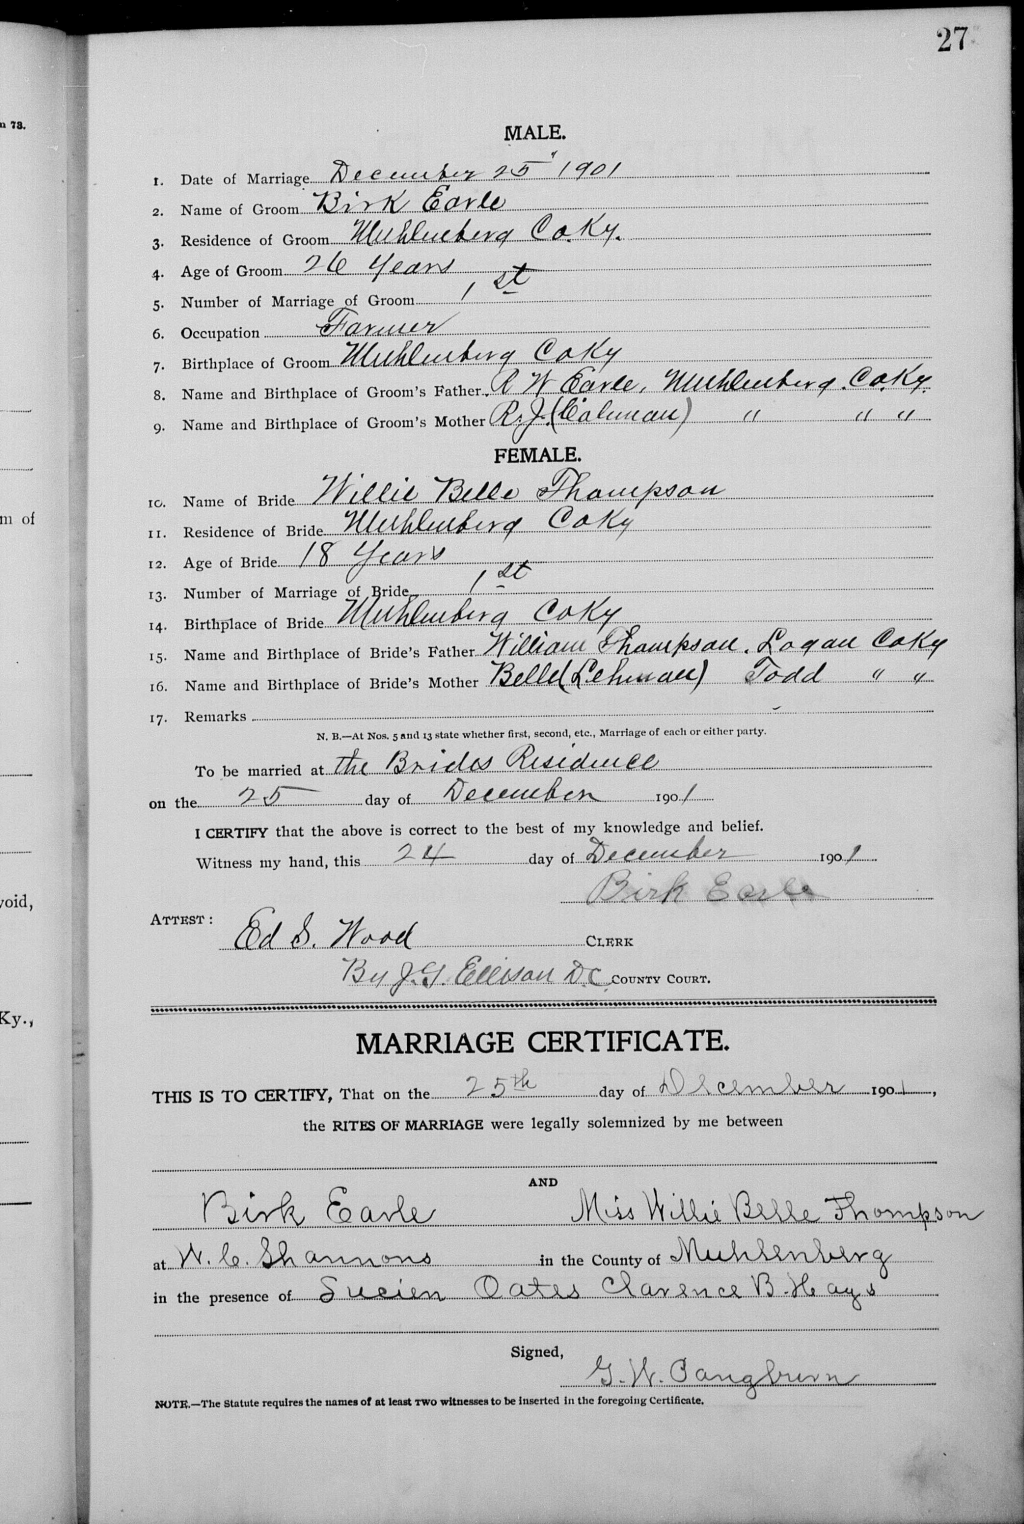 27
n 73.
MALE.
1. Date of Marriage December 25" 1901
2. Name of Groom Birk Earle
3. Residence of Groom Muhlenberg Co. Ky.
4. Age of Groom 26 Years
5. Number of Marriage of Groom 1st
6. Occupation Farmer
7. Birthplace of Groom Muhlenberg Co Ky
8. Name and Birthplace of Groom's Father R W Earle, Muhlenberg. Co. Ky.
9. Name and Birthplace of Groom's Mother R. J. (Coleman) " " "
FEMALE.
10. Name of Bride Willie Belle Thompson
m of
11. Residence of Bride Muhlenberg Co Ky
12. Age of Bride 18 Years
13. Number of Marriage of Bride 1st
14. Birthplace of Bride Muhlenberg Co Ky
15. Name and Birthplace of Bride's Father William Thompson. Logan Co Ky
16. Name and Birthplace of Bride's Mother Belle (Lehman) Todd " "
17. Remarks
N. B.—At Nos. 5 and 13 state whether first, second, etc., Marriage of each or either party.
To be married at the Brides Residence
on the 25 day of December 1901
I CERTIFY that the above is correct to the best of my knowledge and belief.
Witness my hand, this 24 day of December 1901
Birk Earle
void,
ATTEST:
Ed S. Wood CLERK
By J. G. Ellison D.C. COUNTY COURT.
Ky.,
MARRIAGE CERTIFICATE.
THIS IS TO CERTIFY, That on the 25th day of December 1901,
the RITES OF MARRIAGE were legally solemnized by me between
AND
Birk Earle Miss Willie Belle Thompson
at W. C. Shannons in the County of Muhlenberg
in the presence of Lucien Oates Clarence B. Hays
Signed,
G. W. Pangburn
NOTE.—The Statute requires the names of at least TWO witnesses to be inserted in the foregoing Certificate.